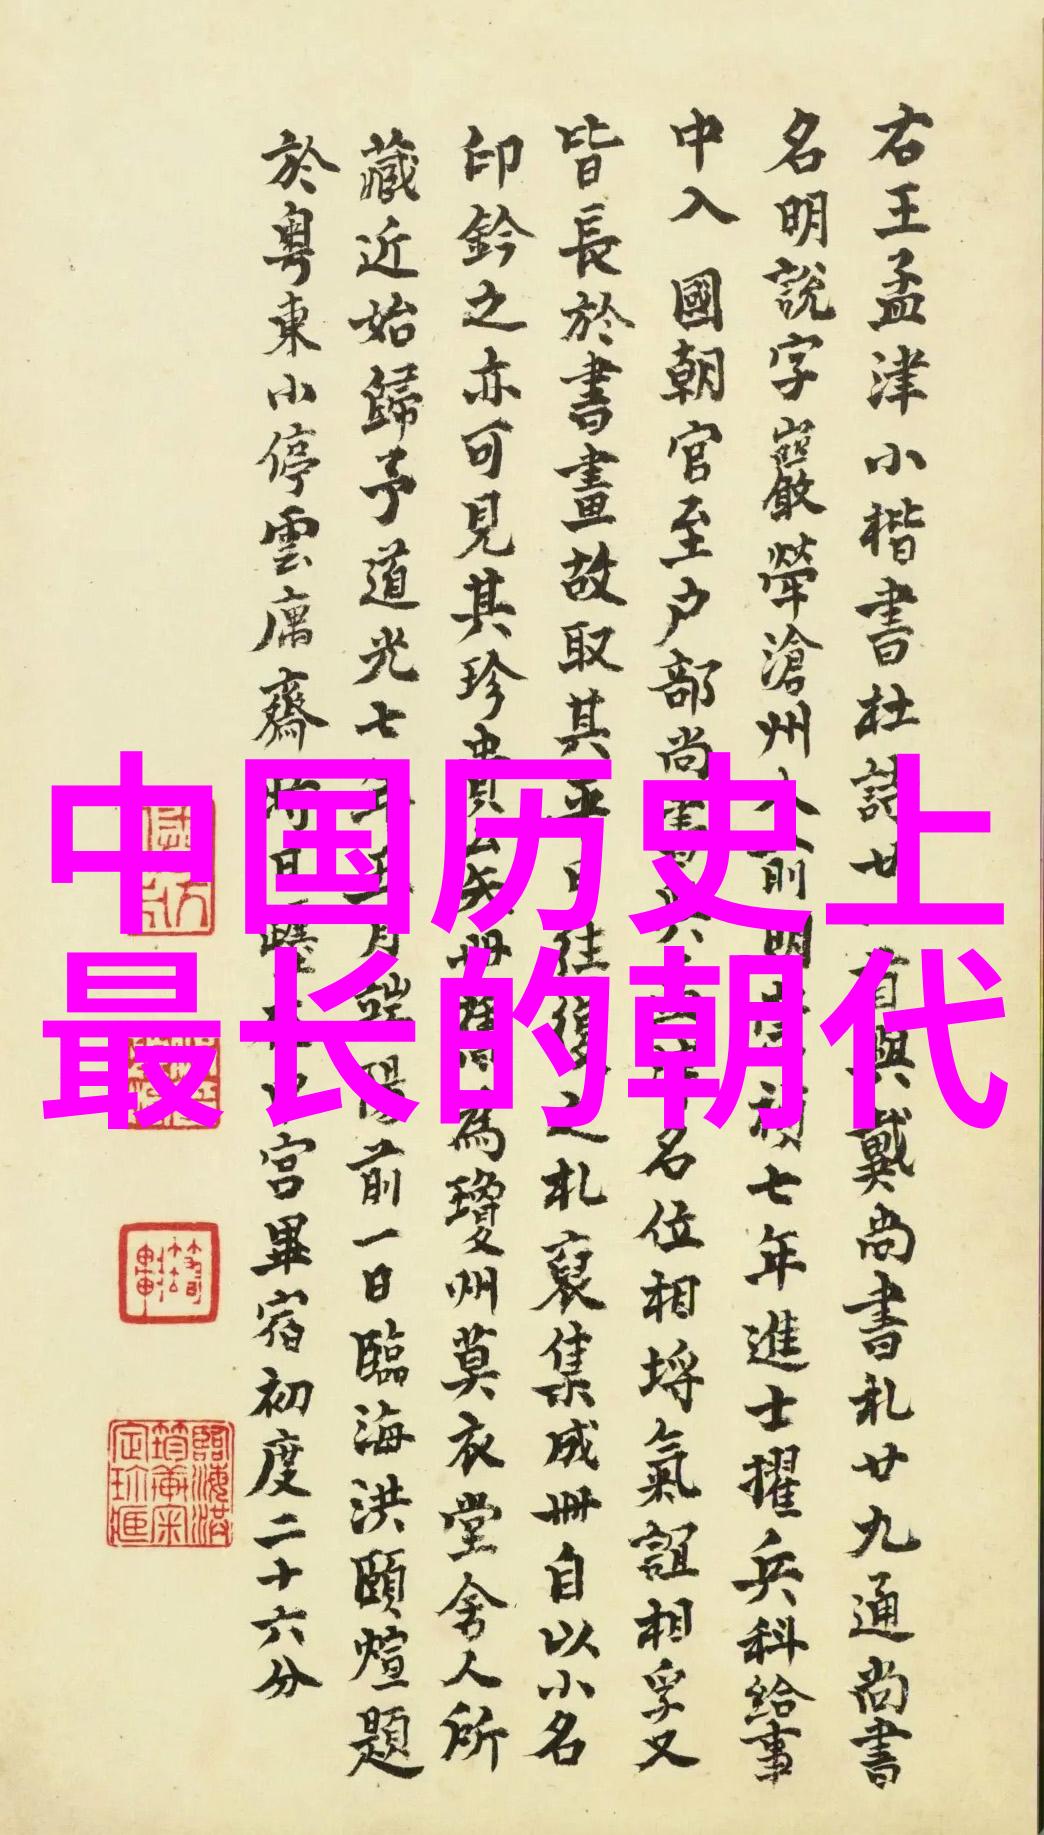 中国历史上
最长的朝代
右王孟津小楷書杜詩廿首與戴尚書札廿九通尚書
名明說字巖犖滄州人前明崇禎七年進士擢兵科給事
中入國朝官至户部尚書與名位相埒氣誼相孚又
皆長於書畫故取其平日往復之札裒集成冊自以小名
印鈐之亦可見其珍貴矣冊舊為瓊州莫衣堂舍人所
藏近始歸予道光七年五月端陽前一日臨海洪頤煊題
於粤東小停雲庽齋時日躔宮畢宿初度二十六分